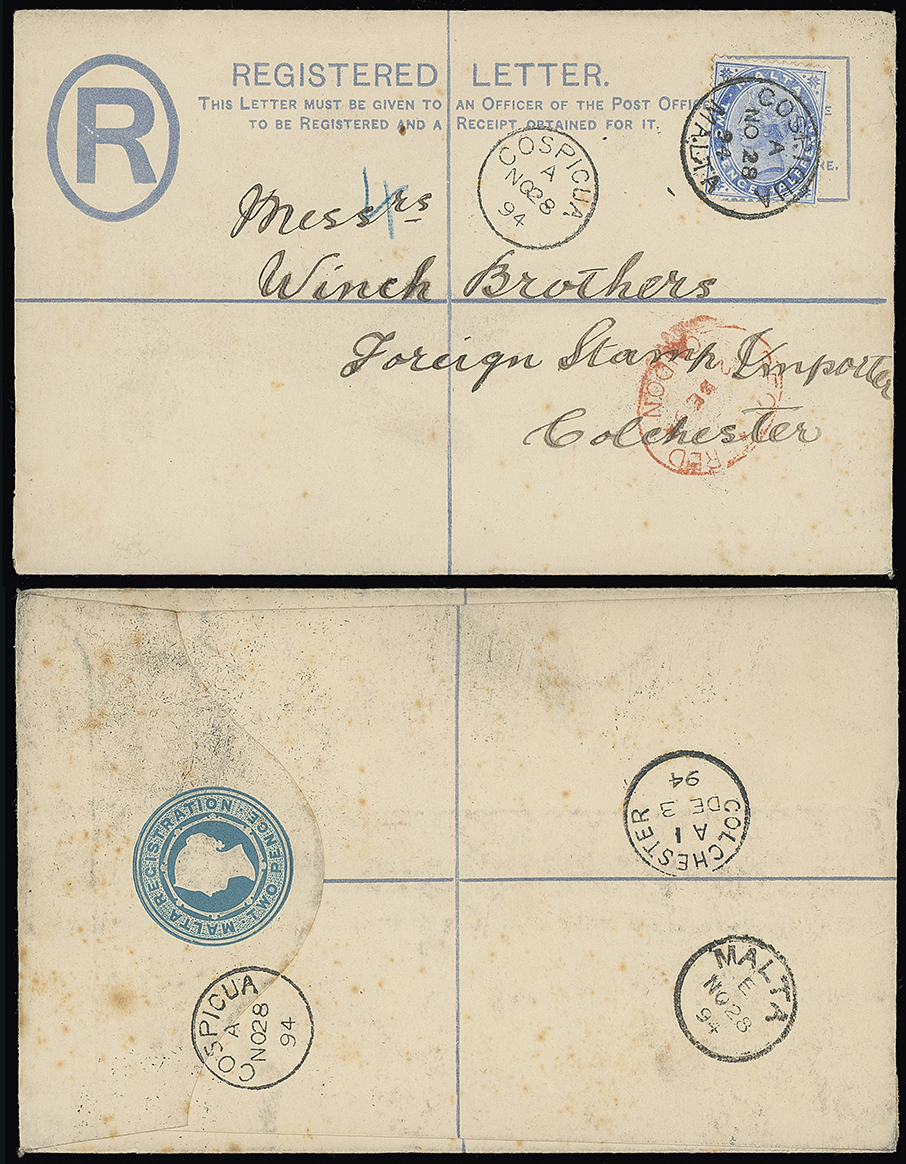 R
REGISTERED LETTER.
THIS LETTER MUST BE GIVEN TO AN OFFICER OF THE POST OFFICE
TO BE REGISTERED AND A RECEIPT OBTAINED FOR IT.
RE.
MALTA
PENCE HALFPENNY
MALTA
A
NO 28
94
COSPICUA
A
NO28
94
4
Messrs
Winch Brothers
Foreign Stamp Importer
Colchester
LONDON
DE
RED
MALTA REGISTRATION
TWO PENCE
COLCHESTER
A1
DE 3
94
COSPICUA
A
NO28
94
MALTA
E
NO28
94